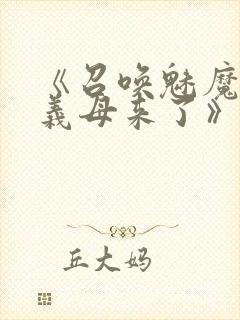 《召唤魅魔
義母来了》
丘大妈